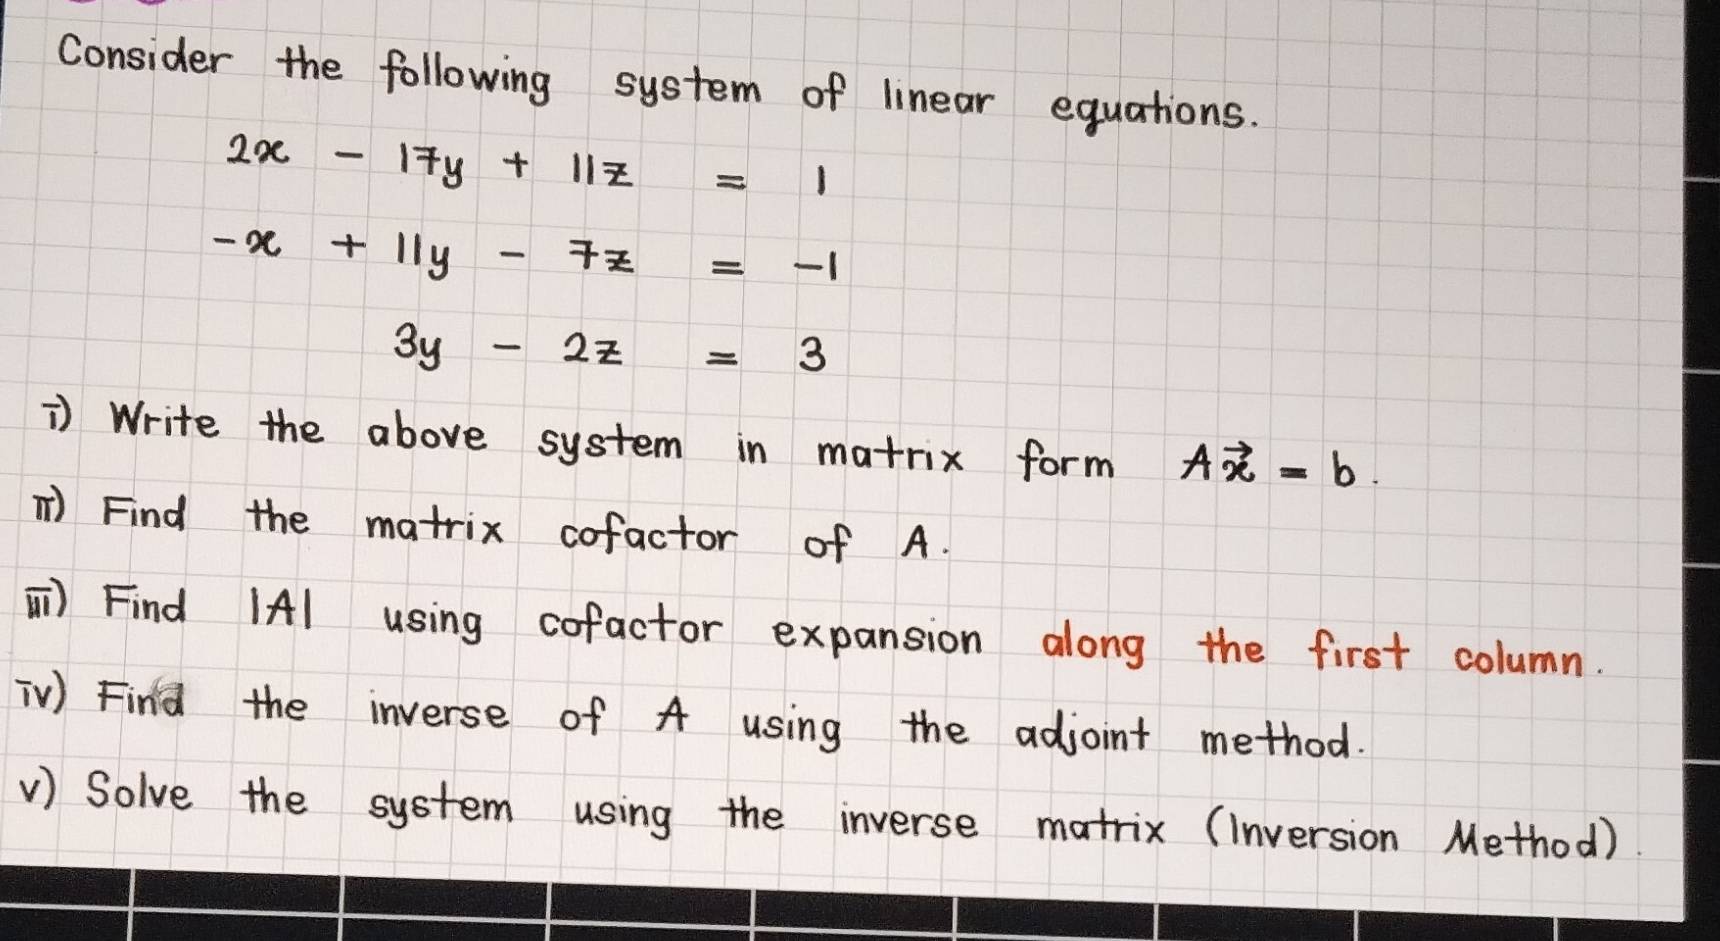 Consider the following system of linear equations.
2x - 17y + 11z = 1
-x + 11y - 7z = -1
3y - 2z = 3
i) Write the above system in matrix form Ax⃗ = b.
ii) Find the matrix cofactor of A.
iii) Find |A| using cofactor expansion along the first column.
iv) Find the inverse of A using the adjoint method.
v) Solve the system using the inverse matrix (Inversion Method).